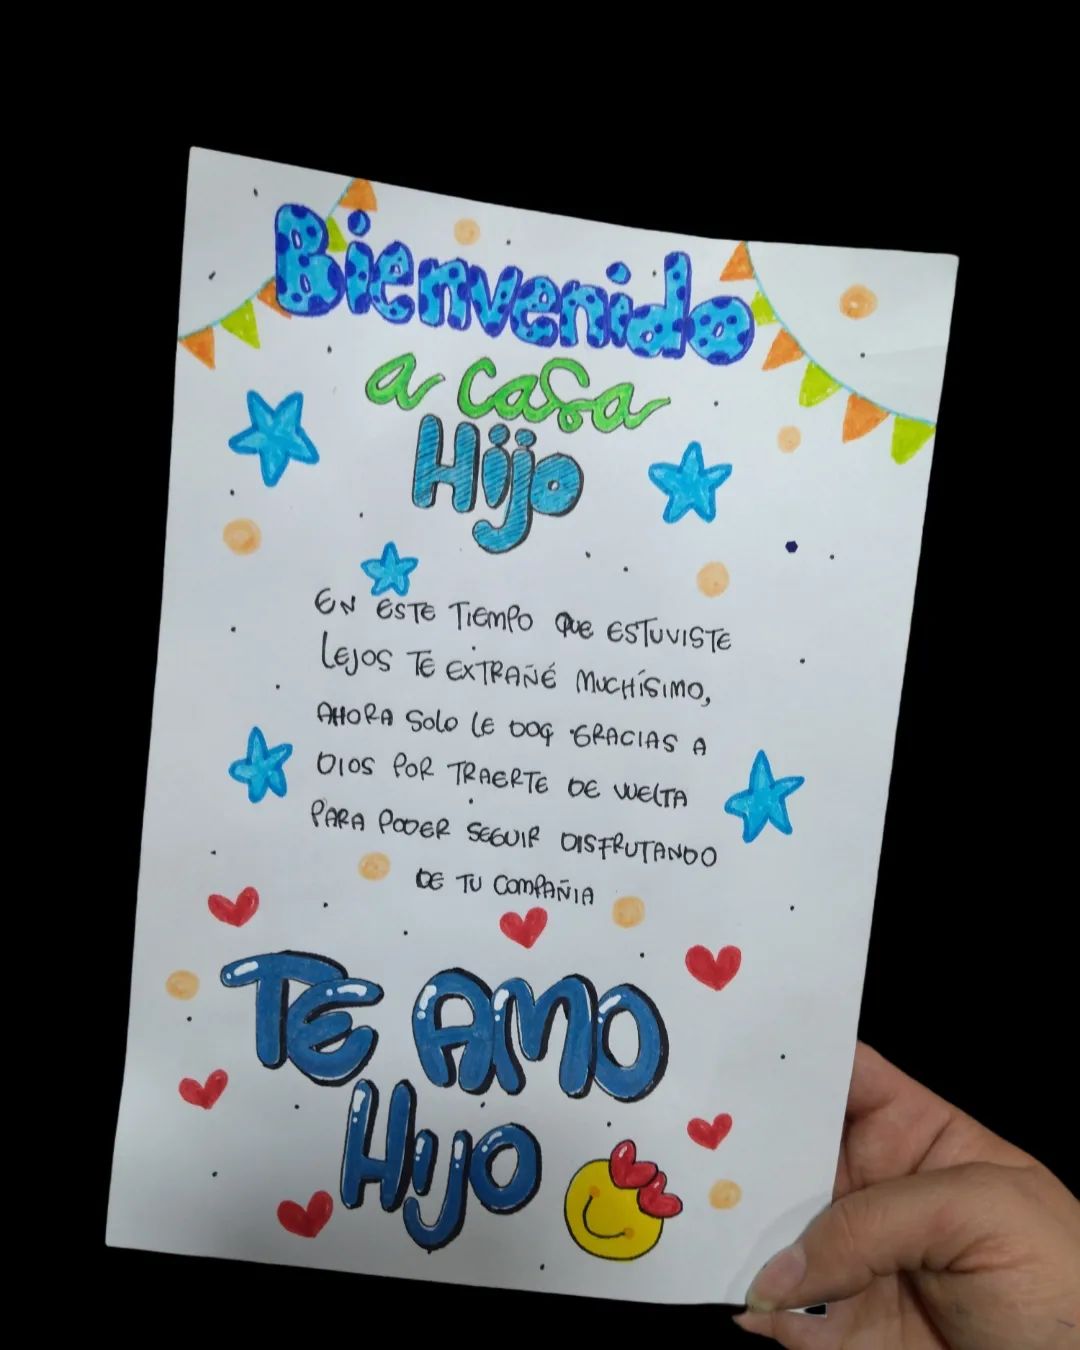 Bienvenido
a casa
Hijo
EN ESTE TIEMPO QUE ESTUVISTE
LEJOS TE EXTRAÑÉ MUCHÍSIMO,
AHORA SOLO LE DOY GRACIAS A
DIOS POR TRAERTE DE VUELTA
PARA PODER SEGUIR DISFRUTANDO
DE TU COMPAÑIA
TE AMO
HIJO